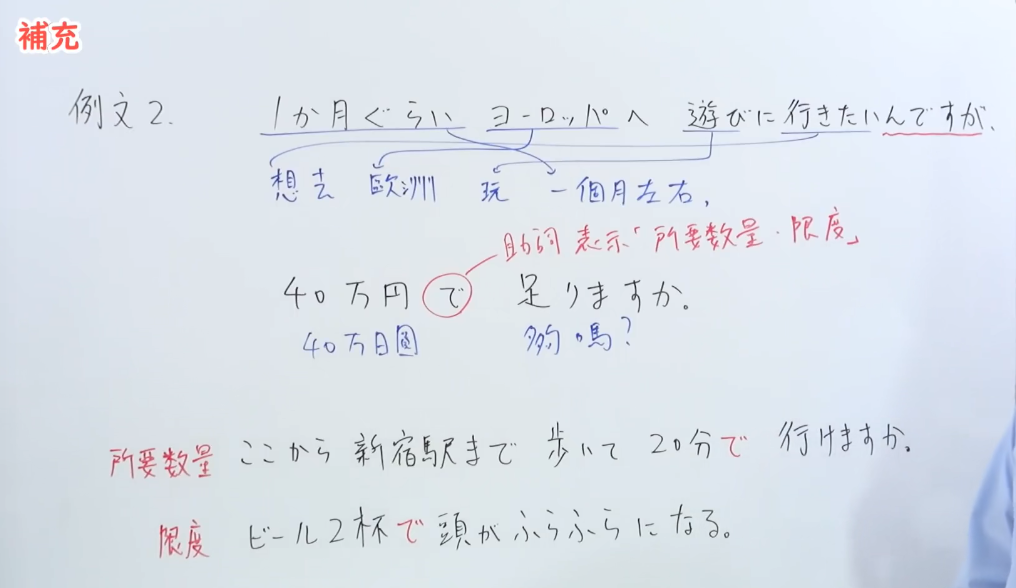 補充
例文2. 1か月ぐらい ヨーロッパへ 遊びに 行きたいんですが、
想去 歐洲 玩 一個月左右,
助詞 表示「所要数量・限度」
40万円で 足りますか。
40万日圓 夠嗎?
所要数量 ここから 新宿駅まで 歩いて 20分で 行けますか。
限度 ビール2杯で 頭がふらふらになる。